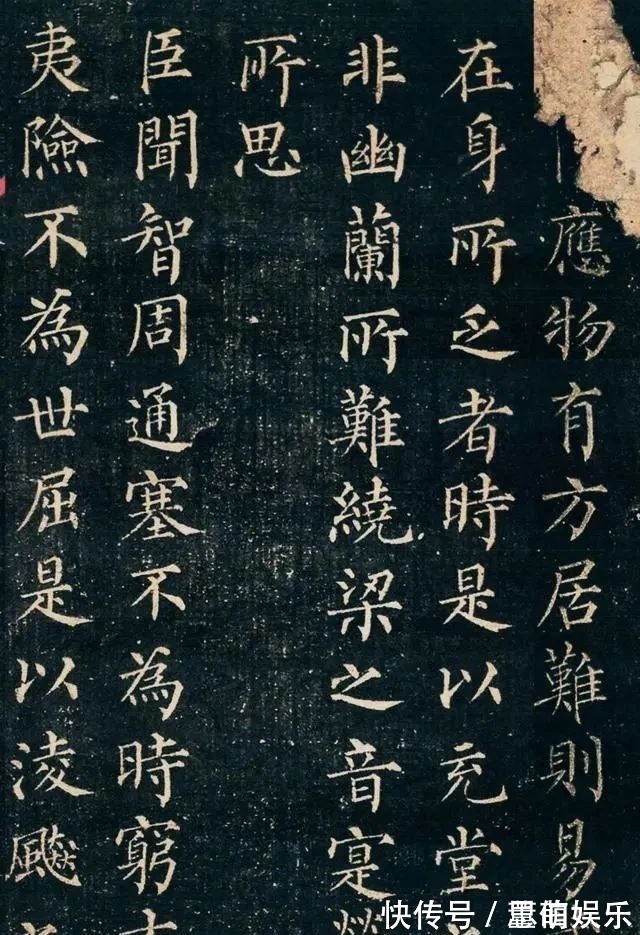 應物有方居難則易
在身所乏者時是以充堂
非幽蘭所難繞梁之音寔
所思
臣聞智周通塞不為時窮
夷險不為世屈是以淩飈
快传号 / 娱乐